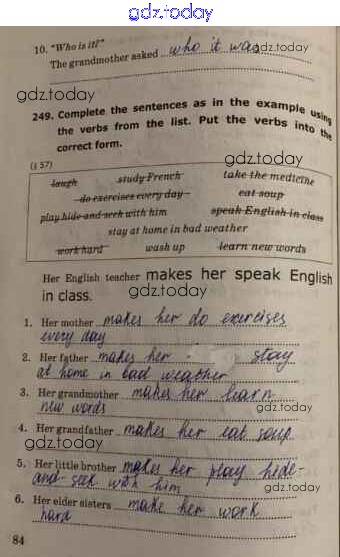 gdz.today
10. "Who is it?"
The grandmother asked who it was
gdz.today
gdz.today
249. Complete the sentences as in the example using
the verbs from the list. Put the verbs into the
correct form.
(§ 57)
gdz.today
laugh study French take the medicine
do exercises every day eat soup
gdz.today
play hide-and-seek with him speak English in class
stay at home in bad weather
work hard wash up learn new words
Her English teacher makes her speak English
in class.
gdz.today
1. Her mother makes her do exercises
every day
2. Her father makes her stay
at home in bad weather
3. Her grandmother makes her learn
new words
gdz.today
4. Her grandfather makes her eat soup
gdz.today
5. Her little brother makes her play hide-
and-seek with him
6. Her elder sisters make her work
hard
84
gdz.today